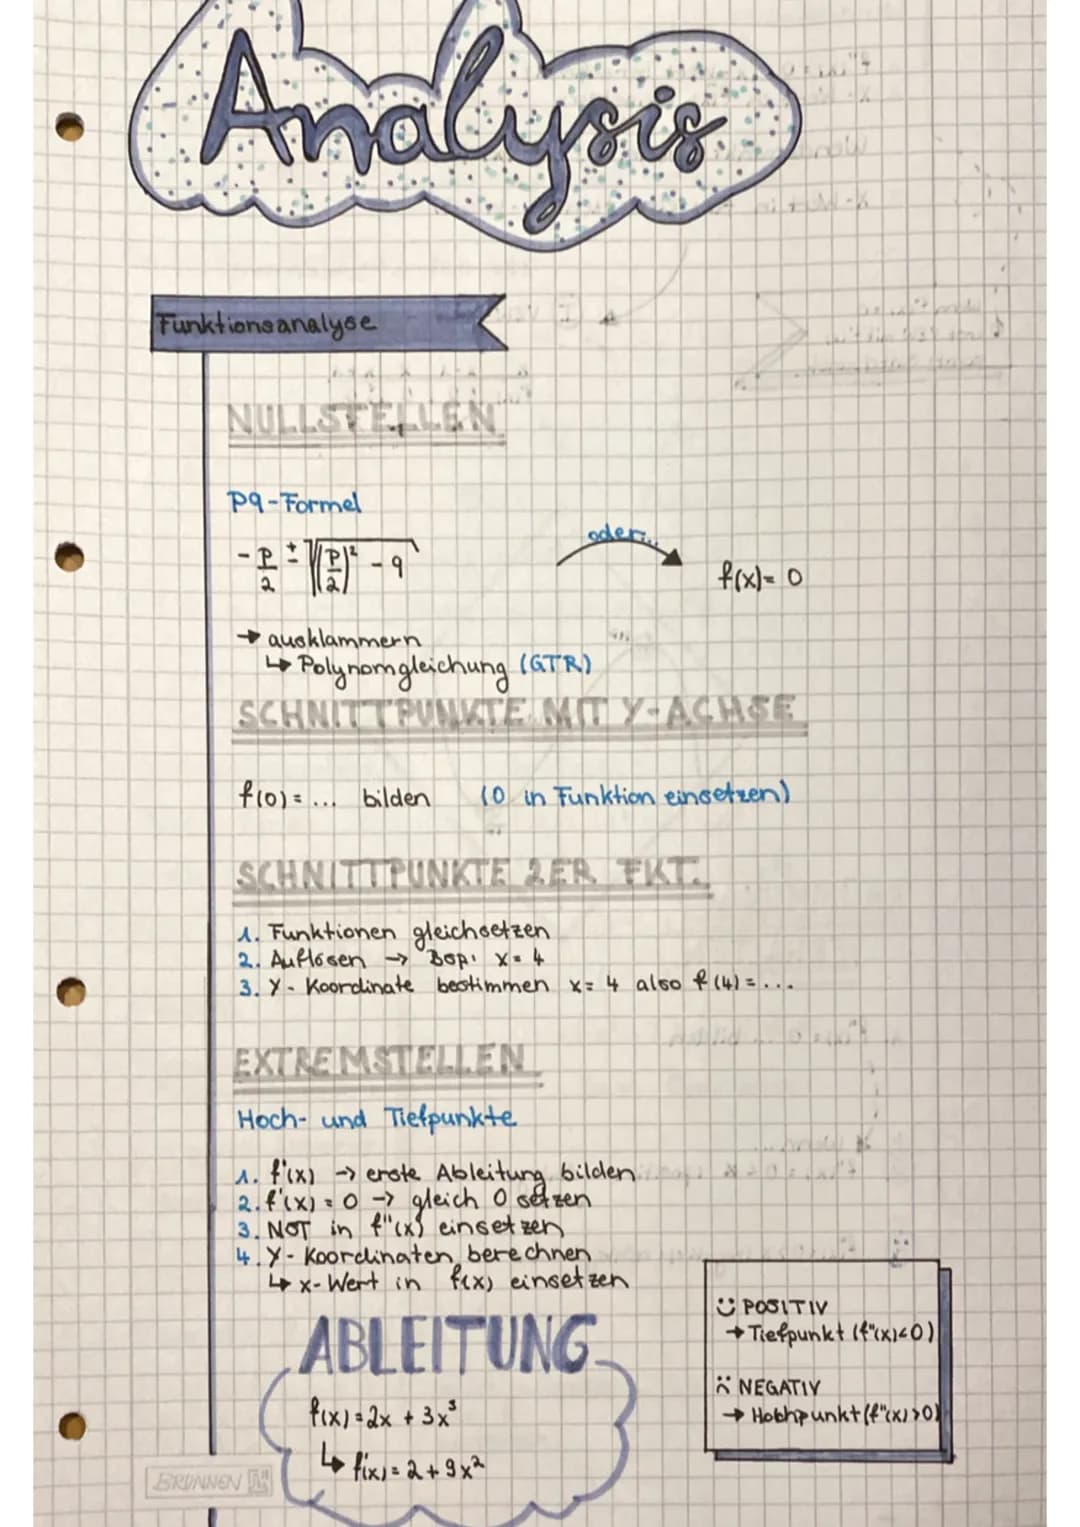 Analysis
Funktionsanalyse
NULLSTELLEN
pq-Formel
- p/2 ± √((p/2)² - q
oder...
f(x)= 0
→ ausklammern
↳ Polynomgleichung (GTR)
SCHNITTPUNKTE MIT Y-ACHSE
f(0) = ... bilden (0 in Funktion einsetzen)
SCHNITTPUNKTE 2ER FKT.
1. Funktionen gleichsetzen
2. Auflösen → Bsp: x = 4
3. Y - Koordinate bestimmen x = 4 also f(4) = ...
EXTREMSTELLEN
Hoch- und Tiefpunkte
1. f'(x) → erste Ableitung bilden
2. f'(x) = 0 → gleich 0 setzen
3. NOT in f"(x) einsetzen
4. Y - Koordinaten berechnen
↳ x-Wert in f(x) einsetzen
POSITIV
→ Tiefpunkt (f"(x)<0)
NEGATIV
→ Hochpunkt (f"(x)>0)
ABLEITUNG
f(x) = 2x + 3x³
↳ f'(x) = 2 + 9x²
BRUNNEN